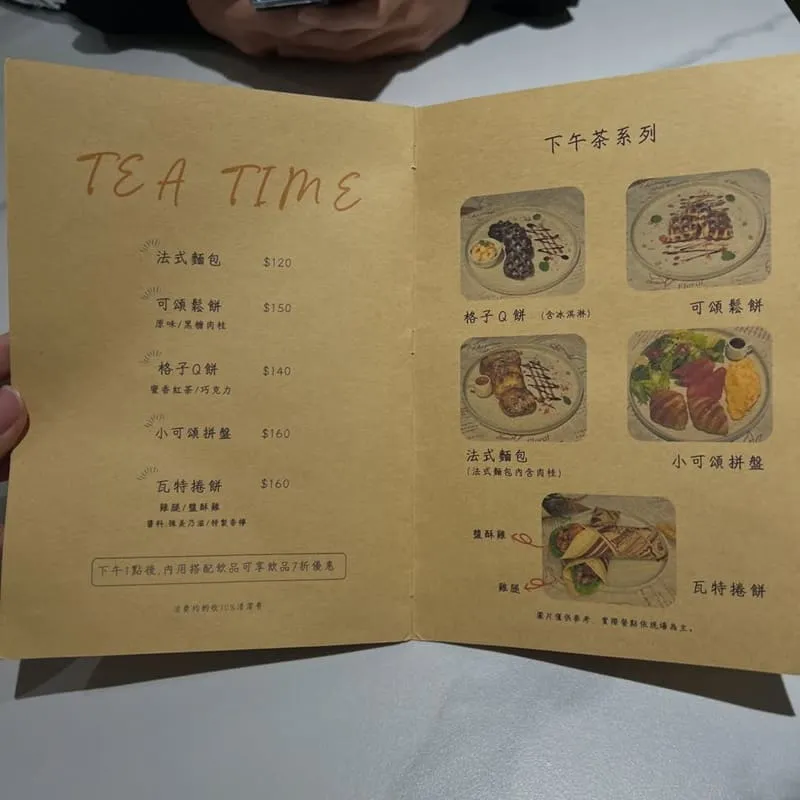 TEA TIME
法式麵包 $120
可頌鬆餅 $150
原味/黑糖肉桂
格子Q餅 $140
蜜香紅茶/巧克力
小可頌拼盤 $160
瓦特捲餅 $160
雞腿/鹽酥雞
下午1點後,內用搭配飲品可享飲品7折優惠
下午茶系列
格子Q餅 (含冰淇淋)
可頌鬆餅
法式麵包
(法式麵包內含肉桂)
小可頌拼盤
鹽酥雞
雞腿
瓦特捲餅
圖片僅供參考,實際餐點依現場為主。